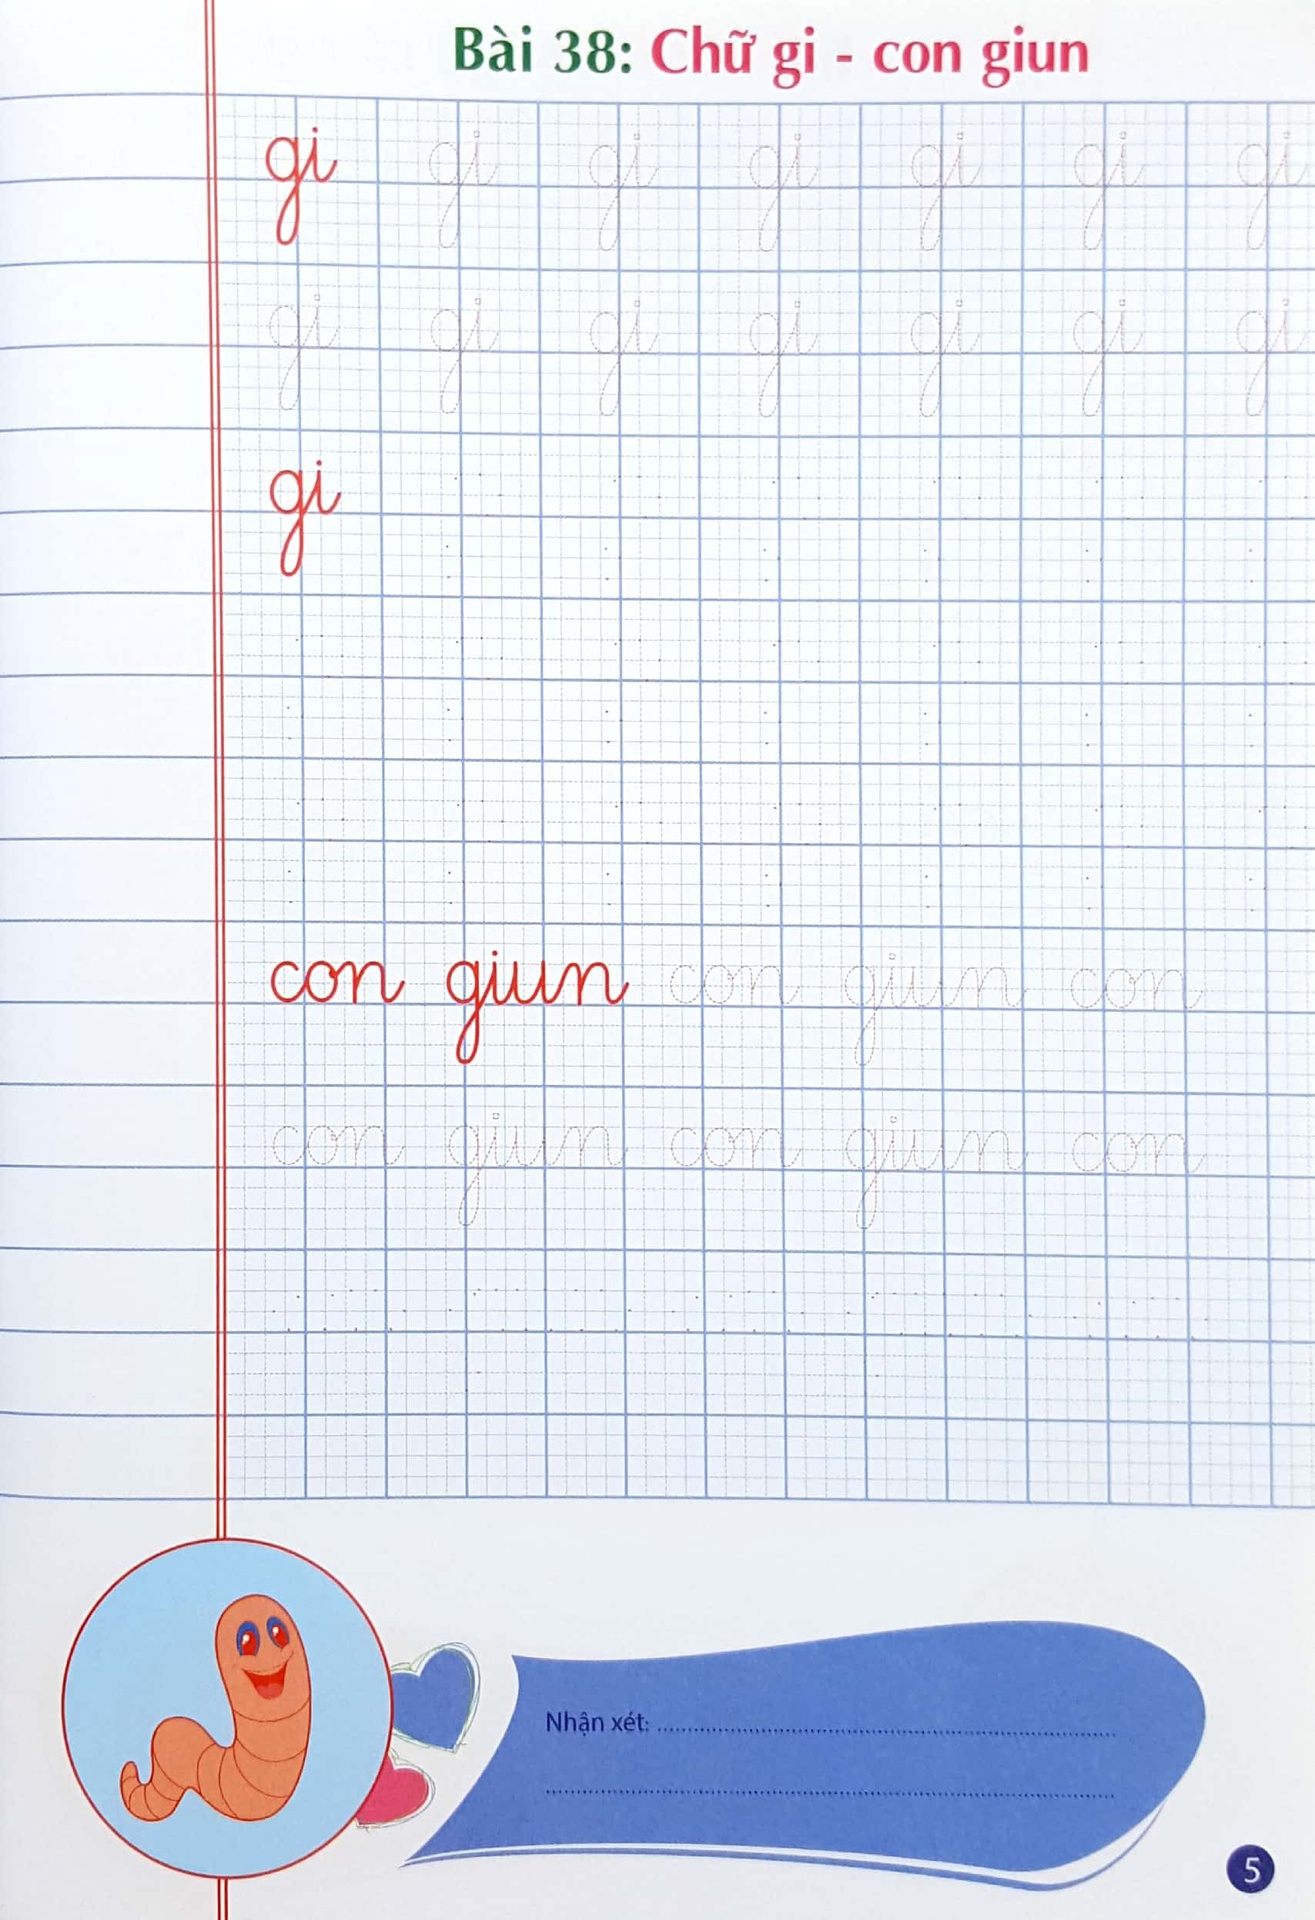 Bài 38: Chữ gi - con giun
gi gi gi gi gi gi gi
gi gi gi gi gi gi gi
gi
con giun con giun con
con giun con giun con
Nhận xét:
5